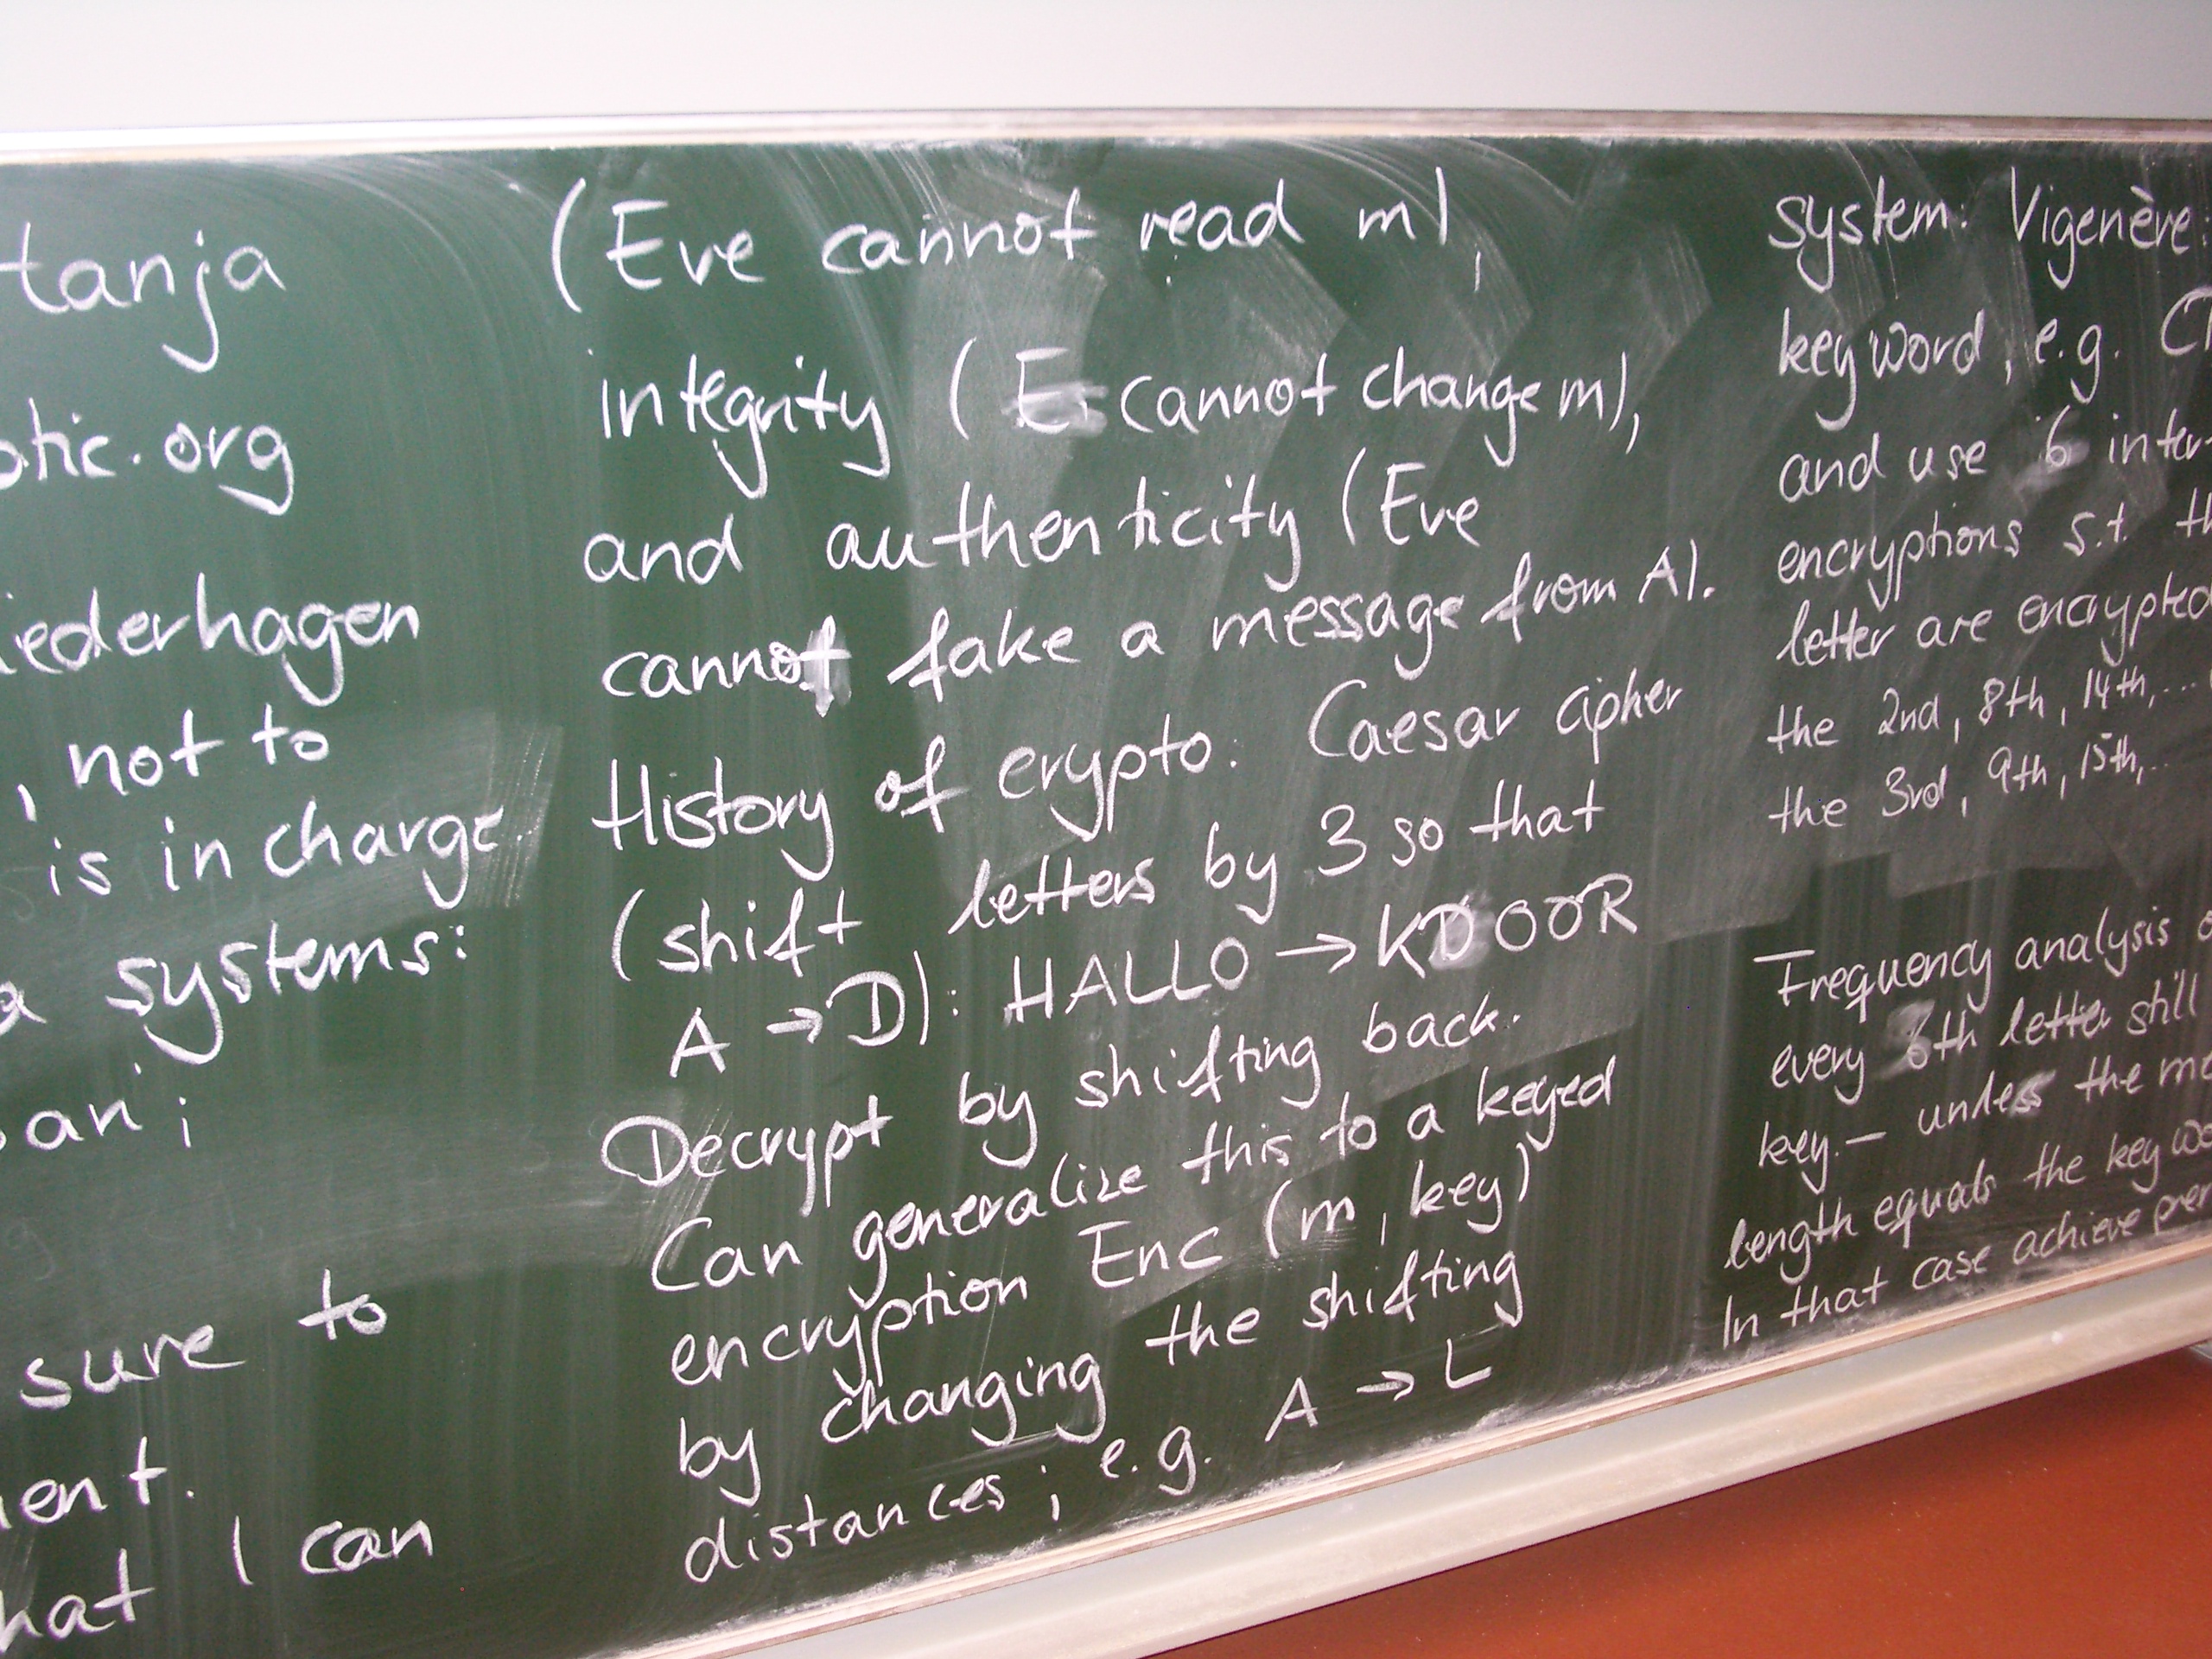 tanja
.org
not to
is in charge
systems:
sure to
I can
(Eve cannot read m),
integrity (E. cannot change m),
and authenticity (Eve
cannot fake a message from A).
History of crypto: Caesar cipher
(shift letters by 3 so that
A → D): HALLO → KDOOR
Decrypt by shifting back.
Can generalize this to a keyed
encryption Enc (m, key)
by changing the shifting
distances; e.g. A → L
system: Vigenère:
key word, e.g.
and use 6 inter-
encryptions s.t.
letter are encrypted
the 2nd, 8th, 14th,...
the 3rd, 9th, 15th,..
Frequency analysis
every 6th letter still
key. — unless the
length equals the key
In that case achieve